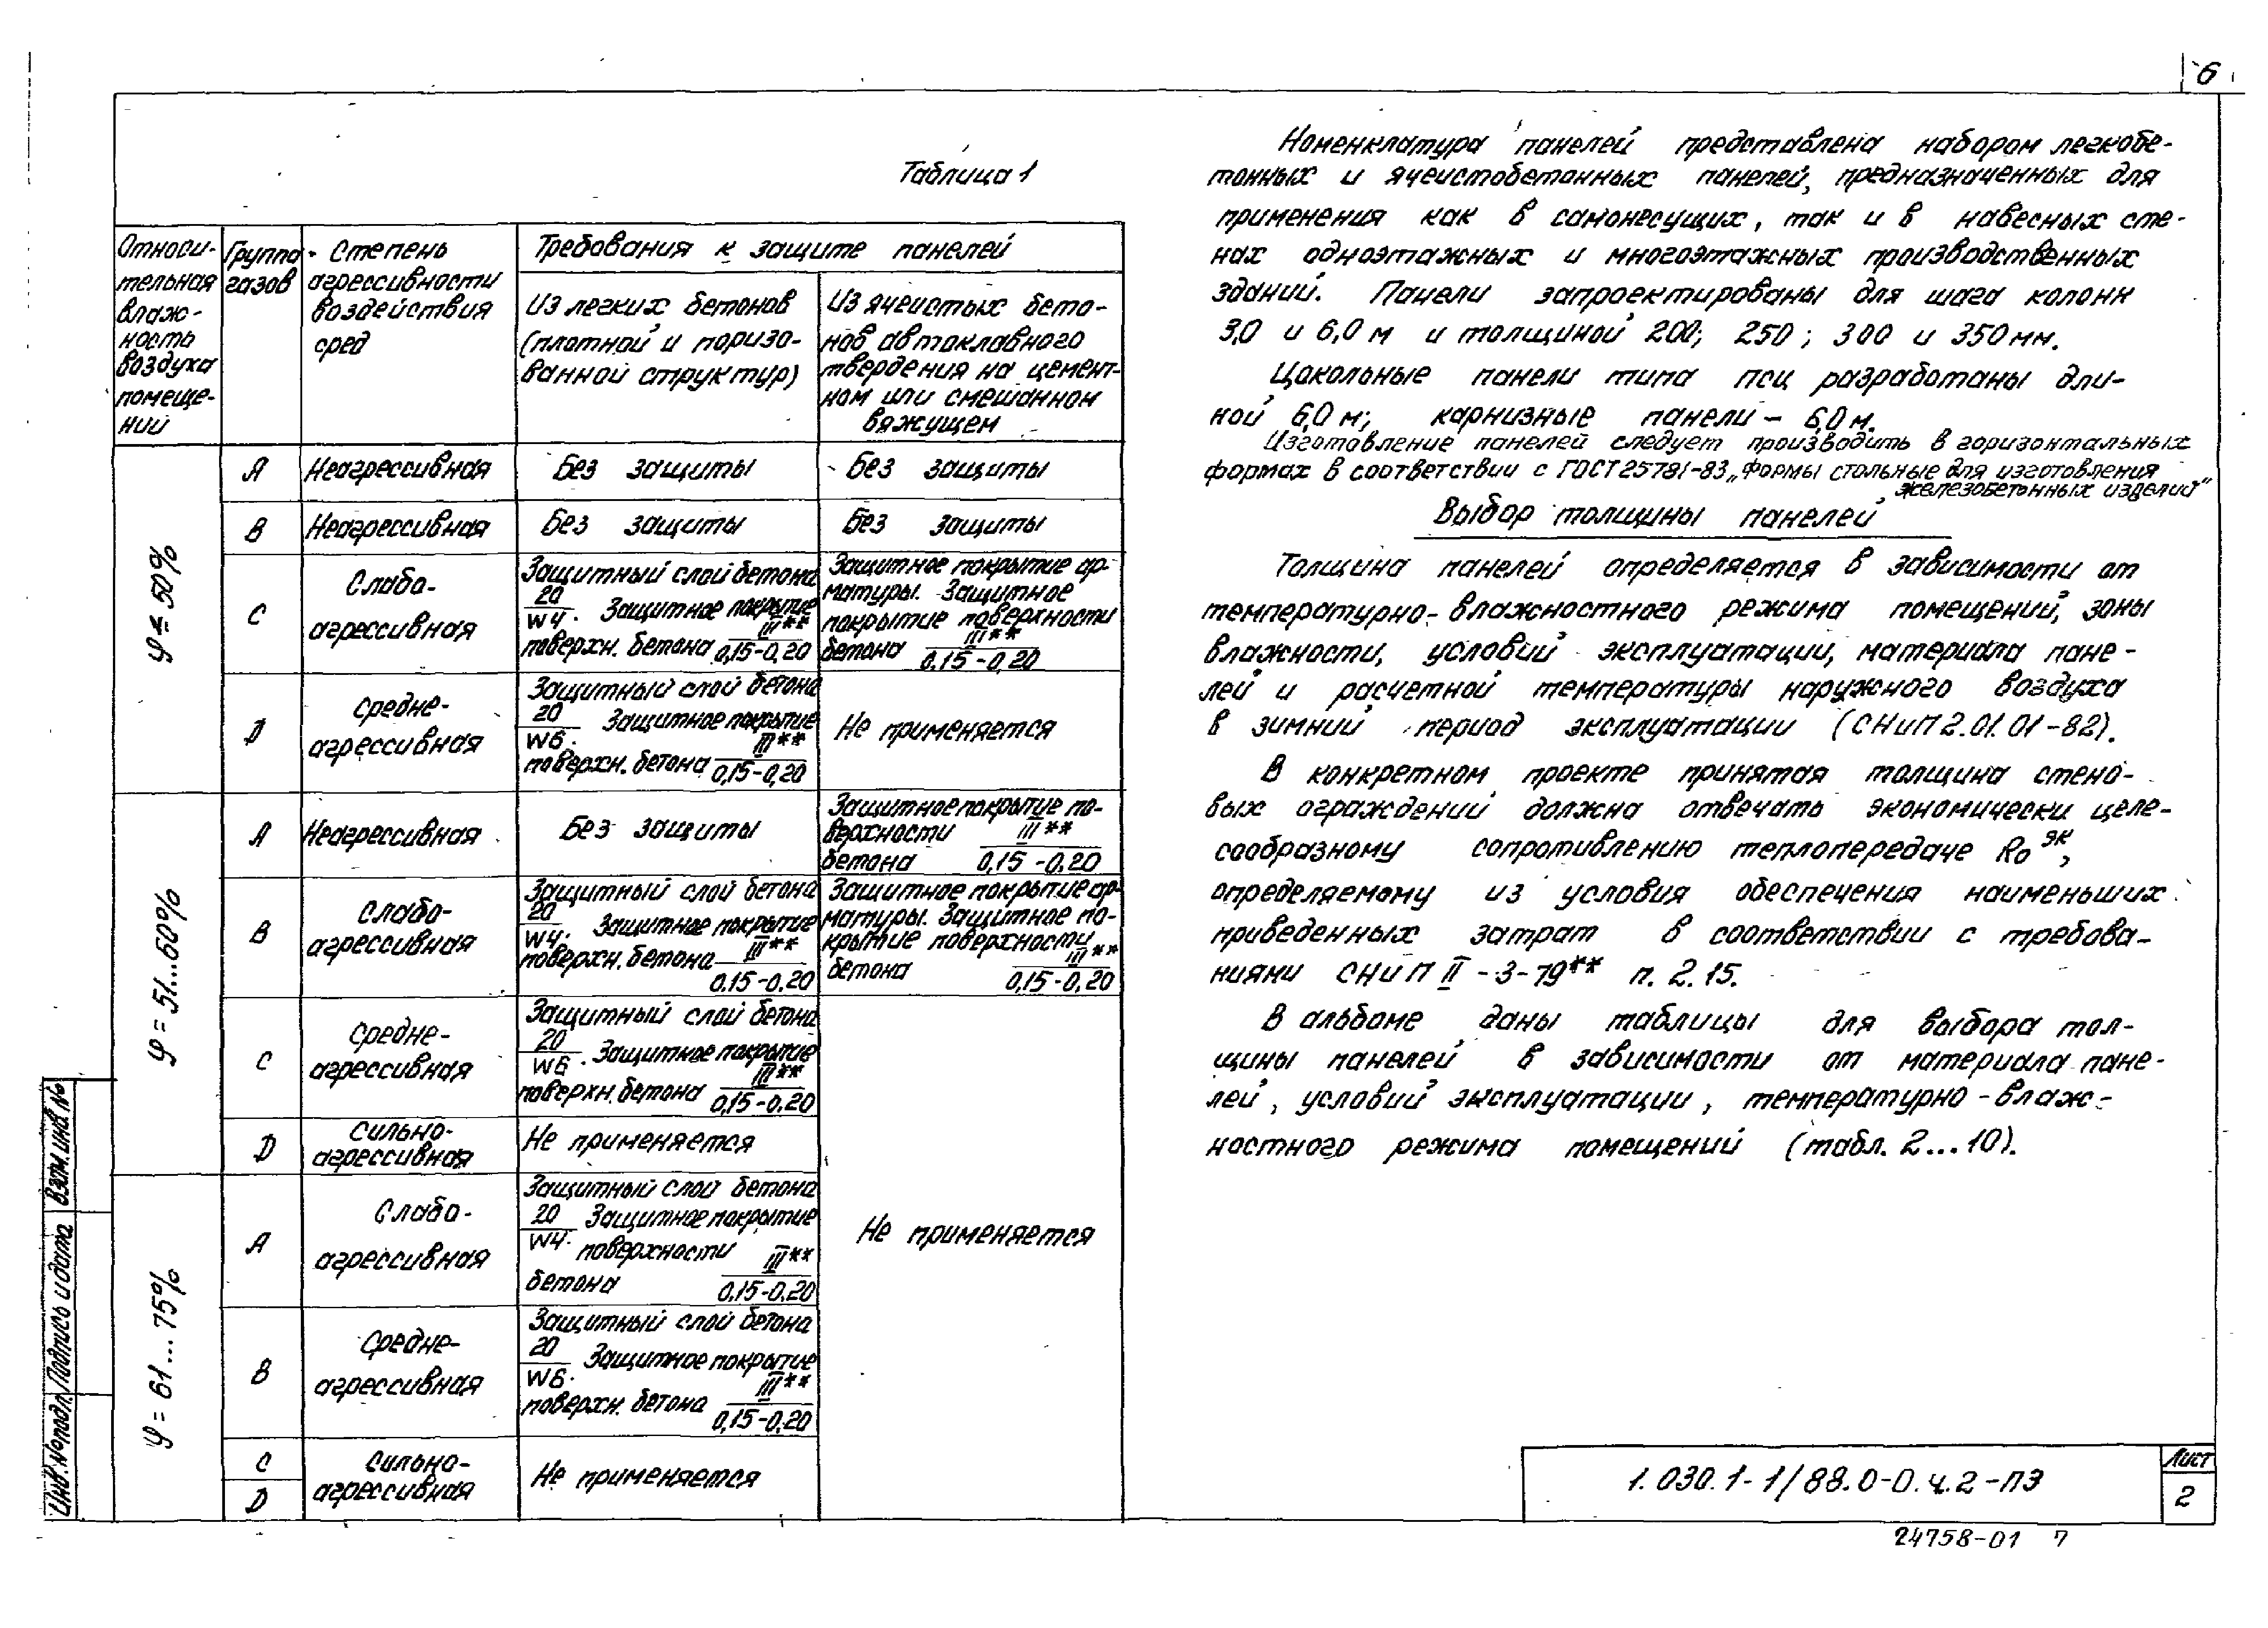 6
Таблица 1
Относи-
тельная
влаж-
ность
воздуха
помеще-
ний
Группа
газов
Степень
агрессивности
воздействия
сред
Требования к защите панелей
Из легких бетонов
(плотной и поризо-
ванной структур)
Из ячеистых бето-
нов автоклавного
твердения на цемент-
ном или смешанном
вяжущем
φ ≤ 50%
А Неагрессивная Без защиты Без защиты
В Неагрессивная Без защиты Без защиты
С
Слабо-
агрессивная
Защитный слой бетона
20
W4. Защитное покрытие
III**
поверхн. бетона 0,15-0,20
Защитное покрытие ар-
матуры. Защитное
покрытие поверхности
III**
бетона 0,15-0,20
D
Средне-
агрессивная
Защитный слой бетона
20
W6. Защитное покрытие
III**
поверхн. бетона 0,15-0,20
Не применяется
φ = 51...60%
А Неагрессивная Без защиты
Защитное покрытие по-
верхности III**
бетона 0,15-0,20
В
Слабо-
агрессивная
Защитный слой бетона
20
W4. Защитное покрытие
поверхн. бетона III**
0,15-0,20
Защитное покрытие ар-
матуры. Защитное по-
крытие поверхности
III**
бетона 0,15-0,20
С
Средне-
агрессивная
Защитный слой бетона
20
W6. Защитное покрытие
III**
поверхн. бетона 0,15-0,20
D
Сильно-
агрессивная
Не применяется
φ = 61...75%
А
Слабо-
агрессивная
Защитный слой бетона
20 Защитное покрытие
W4. поверхности III**
бетона 0,15-0,20
Не применяется
В
Средне-
агрессивная
Защитный слой бетона
20
W6. Защитное покрытие
III**
поверхн. бетона 0,15-0,20
С
D
Сильно-
агрессивная
Не применяется
Номенклатура панелей представлена набором легкобе-
тонных и ячеистобетонных панелей, предназначенных для
применения как в самонесущих, так и в навесных сте-
нах одноэтажных и многоэтажных производственных
зданий. Панели запроектированы для шага колонн
3,0 и 6,0 м и толщиной 200; 250; 300 и 350 мм.
Цокольные панели типа ПСЦ разработаны дли-
ной 6,0 м; карнизные панели - 6,0 м.
Изготовление панелей следует производить в горизонтальных
формах в соответствии с ГОСТ 25781-83 „Формы стольные для изготовления
железобетонных изделий"
Выбор толщины панелей
Толщина панелей определяется в зависимости от
температурно-влажностного режима помещений, зоны
влажности, условий эксплуатации, материала пане-
лей и расчетной температуры наружного воздуха
в зимний период эксплуатации (СНиП 2.01.01-82).
В конкретном проекте принятая толщина стено-
вых ограждений должна отвечать экономически целе-
сообразному сопротивлению теплопередаче Rо эк,
определяемому из условия обеспечения наименьших
приведенных затрат в соответствии с требова-
ниями СНиП II-3-79** п. 2.15.
В альбоме даны таблицы для выбора тол-
щины панелей в зависимости от материала пане-
лей, условий эксплуатации, температурно-влаж-
ностного режима помещений (табл. 2...10).
Инв. № подл. Подпись и дата Взам. инв №
1.030.1-1/88.0-0.ч.2-ПЗ
Лист
2
24758-01 7